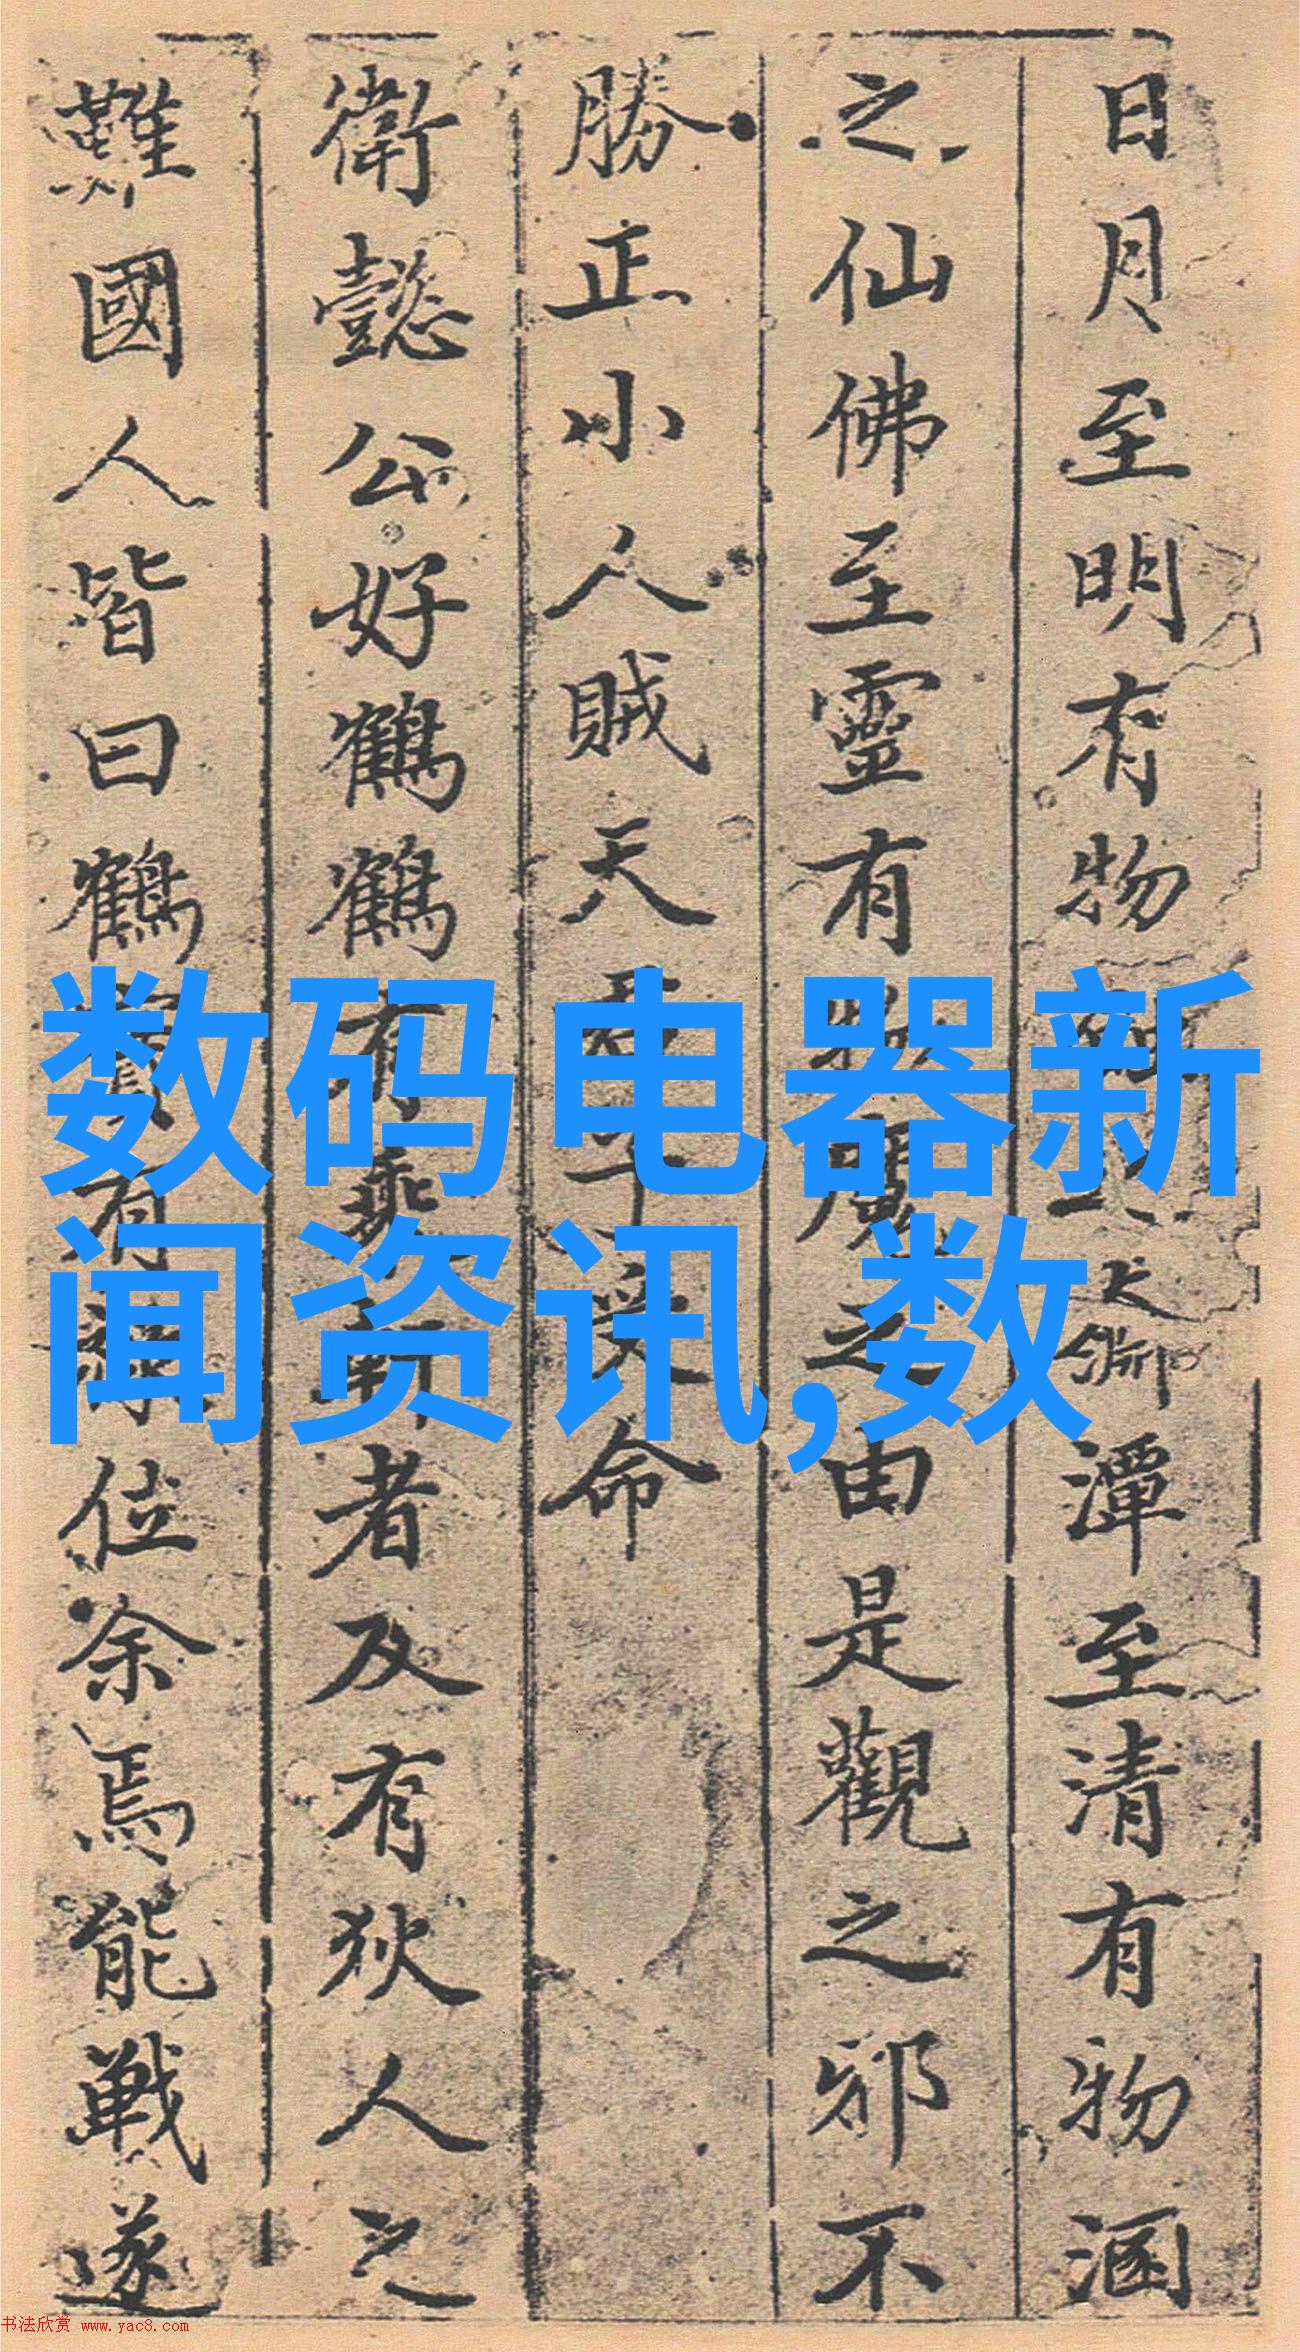 日月至明有物
大淵潭至清有物涵
之仙佛至靈有
之由是觀之邪不
勝正小人賊天
受命
衛懿公好鶴鶴有乘軒者及有狄人之
難國人皆曰鶴實有祿位余焉能戰遂
数码电器新
闻资讯,数
书法欣赏 www.yac8.com